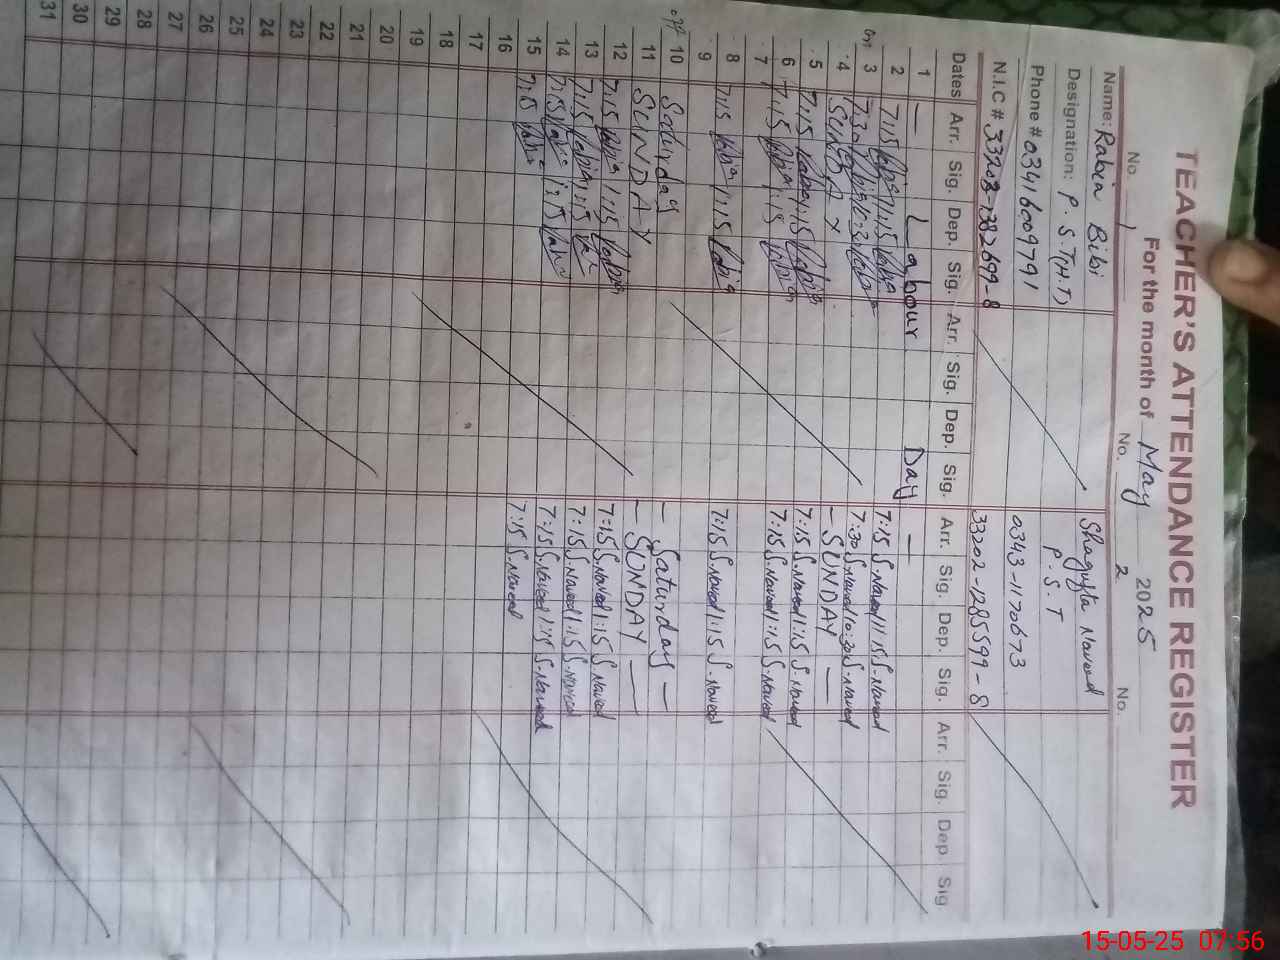 TEACHER'S ATTENDANCE REGISTER
For the month of May 2025
No. 1 No. 2 No.
Name: Rabia Bibi Shagufta Naveed
Designation: P.S.T(H.T) P.S.T
Phone # 03416009791 0343-1170673
N.I.C # 33202-1382699-8 33202-1285599-8
Dates Arr. Sig. Dep. Sig. Arr. Sig. Dep. Sig. Arr. Sig. Dep. Sig. Arr. Sig. Dep. Sig
1 — Labour Day —
2 7:15 Rabia 1:15 Rabia 7:15 S.Naveed 1:15 S.Naveed
3 7:30 Rabia 10:30 7:30 S.Naveed 10:30 S.Naveed
4 SUNDAY — SUNDAY —
5 7:15 Rabia 1:15 Rabia 7:15 S.Naveed 1:15 S.Naveed
6 7:15 Rabia 1:15 Rabia 7:15 S.Naveed 1:15 S.Naveed
7
8 7:15 Rabia 1:15 Rabia 7:15 S.Naveed 1:15 S.Naveed
9
off 10 Saturday — Saturday —
11 SUNDAY — SUNDAY —
12 7:15 Rabia 1:15 Rabia 7:15 S.Naveed 1:15 S.Naveed
13 7:15 Rabia 1:15 7:15 S.Naveed 1:15 S.Naveed
14 7:15 Rabia 1:15 Rabia 7:15 S.Naveed 1:15 S.Naveed
15 7:15 Rabia 7:15 S.Naveed
16
17
18
19
20
21
22
23
24
25
26
27
28
29
30
31
15-05-25 07:56